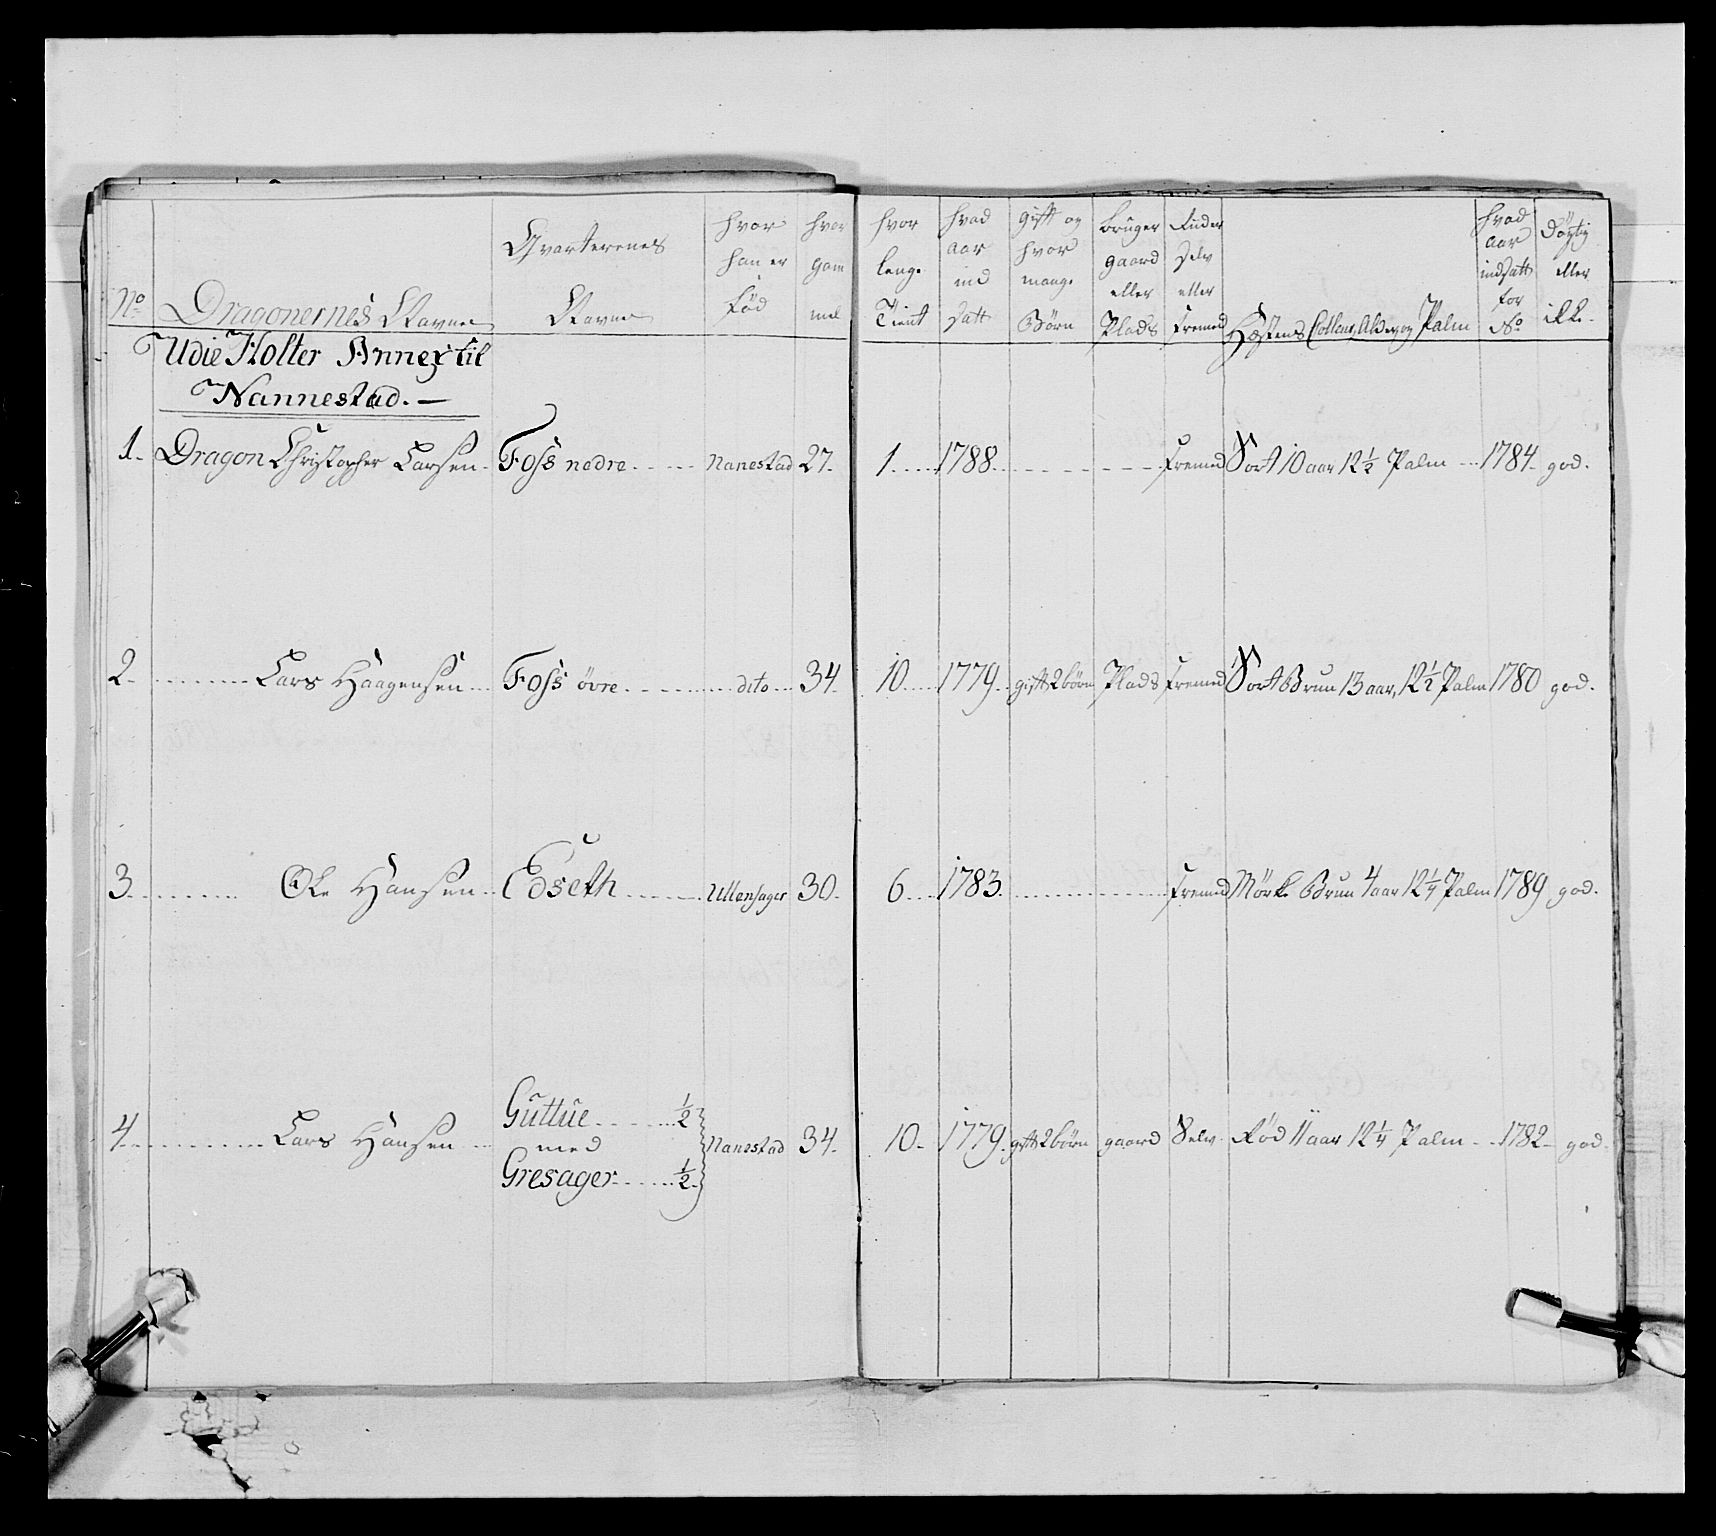 No Dragonernes Navne Qvarterenes Navne hvor han er fød hvor gam mel hvor lenge Tient hvad aar ind satt gift og hvor mange Børn bruger gaard eller Plads Ruder selv eller fremed Hæstens Colleur, Alder og Palm hvad aar indsatt for No døgtig eller ikke
Udie Holter Annex til
Nannestad. —
1. Dragon Christopher Larsen Foss nedre Nanestad 27. 1. 1788. fremed Sort 10 aar 12½ Palm 1784 god.
2. Lars Haagensen Foss övre dito 34. 10. 1779. gift 2 börn Plads fremed Sort Brun 13 aar, 12½ Palm 1780 god.
3. Ole Hansen Edseth Ullensager 30. 6. 1783. fremed Mörk Brun 4 aar 12¼ Palm 1789 god.
4. Lars Hansen Guttue ½ med Gresager ½ Nanestad 34. 10. 1779. gift 2 börn gaard Selv Rød 11 aar 12¼ Palm 1782 god.